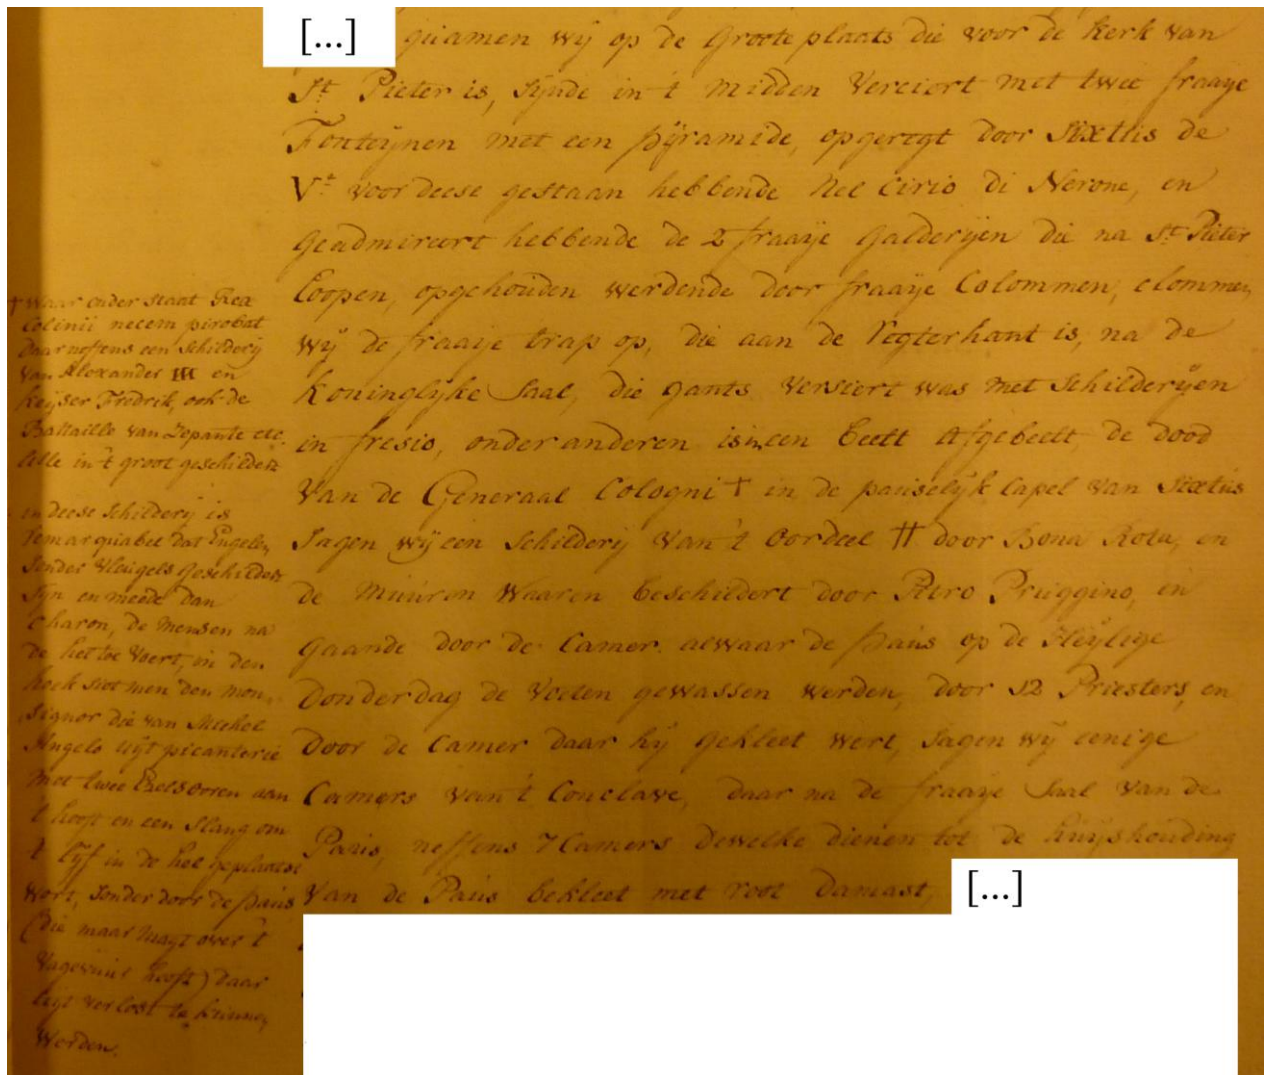 [...] quamen wij op de Groote plaats die voor de Kerk van
St. Pieter is, sijnde in 't midden Verciort met twee fraaije
Fonteijnen met een pijramide, opgeregt door Sixtus de
Vt. voor deese gestaan hebbende nel Cirio di Nerone, en
geadmireert hebbende de 2 fraaije galderijen die na St. Pieter
loopen, opgehouden werdende door fraaije Colommen, clommen
wij de fraaije trap op, die aan de regterhant is, na de
Koninglijke Saal, die gants Versiert was met Schilderijen
in fresio, onder anderen is in een beelt afgebeelt, de dood
van de Generaal Cologni † in de pauselijk Capel van Sixtus
Sagen wij een Schilderij van 't oordeel †† door Bona Rota, en
de Muuren Waaren beschildert door Petro Pruggino, en
gaande door de Camer alwaar de paus op de Heijlige
Donderdag de Voeten gewassen werden, door 12 Priesters, en
door de Camer daar hij gekleet wert, sagen wij eenige
Camers van 't Conclave, daar na de fraaije Saal van de
Paus, neffens 7 Camers dewelke dienen tot de huijshouding
van de Paus bekleet met root damast, [...]
† Waar onder staat Rea
Colinii necem probat
daar neffens een Schilderij
van Alexander III en
Keijser Fredrik, ook de
Battaille van Lepante etc.
Alle in 't groot geschildert
in deese Schilderij is
remarquabel dat Engelen
sonder Vleugels geschildert
sijn en meede dan
Charon, de mensen na
de hel toe voert, in den
hoek siet men den mon-
signor die van Michel
Angelo lijt picanterie
met twee Eselsooren aan
't hooft en een Slang om
't lijf in de hel geplaatst
wort, sonder door de paus
(die maar magt over 't
Vagevuur heeft) daar
uijt verlost te kunnen
werden.